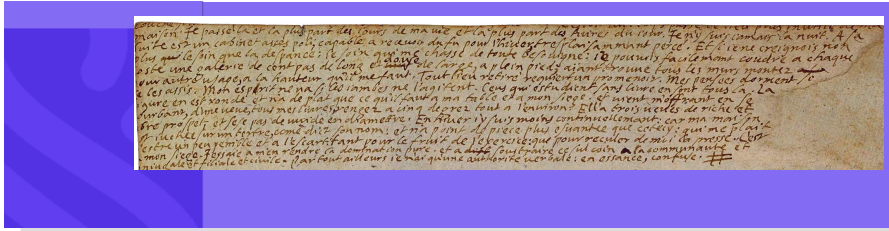 maison. Je passe la et la plus part des jours de ma vie et la plus part des heures du jour. Je n'y suis jamais la nuit. A sa
suite est un cabinet asses poli, capable a recevoir du fu pour l'hiver tresplaisammant percé. Et si je ne creignois non
plus le soin que la despance: le soin qui me chasse de toute besouigne: je pouvois facilemant coudre a chaque
coste une galerie de cent pas de long et douse de large, a plein pied: aiant trouvé tous les murs montez
pour autre usage, a la hauteur qu'il me faut. Tout lieu retiré requiert un promenoir. Mes pensees dorment si
je les assis. Mon esprit ne va si les jambes ne l'agitent. Ceus qui estudient sans livre en sont tous la. La
figure en est ronde et n'a de plat que ce qu'il faut a ma table et a mon siege: et vient m'offrant en se
courbant, d'une veue, tous mes livres, rengez a cinq degrez tout a l'environ. Ell'a trois veues de riche et
libre prospet, et sese pas de vuide en diametre. En hiver j'y suis moins continuellemant: car ma maison
est juchée sur un tertre, come dict son nom, et n'a point de piece plus esvantée que cetecy: qui me plait
d'estre un peu penible et a l'escart, tant pour le fruit de l'exercice que pour reculer de moi la presse. C'est
mon siege. J'essaie a m'en rendre la domination pure: et a soustraire ce sul coin a la communauté et
conjugale et filiale et civile. Par tout ailleurs je n'ai qu'une authorité verbale: en essance, confuse.